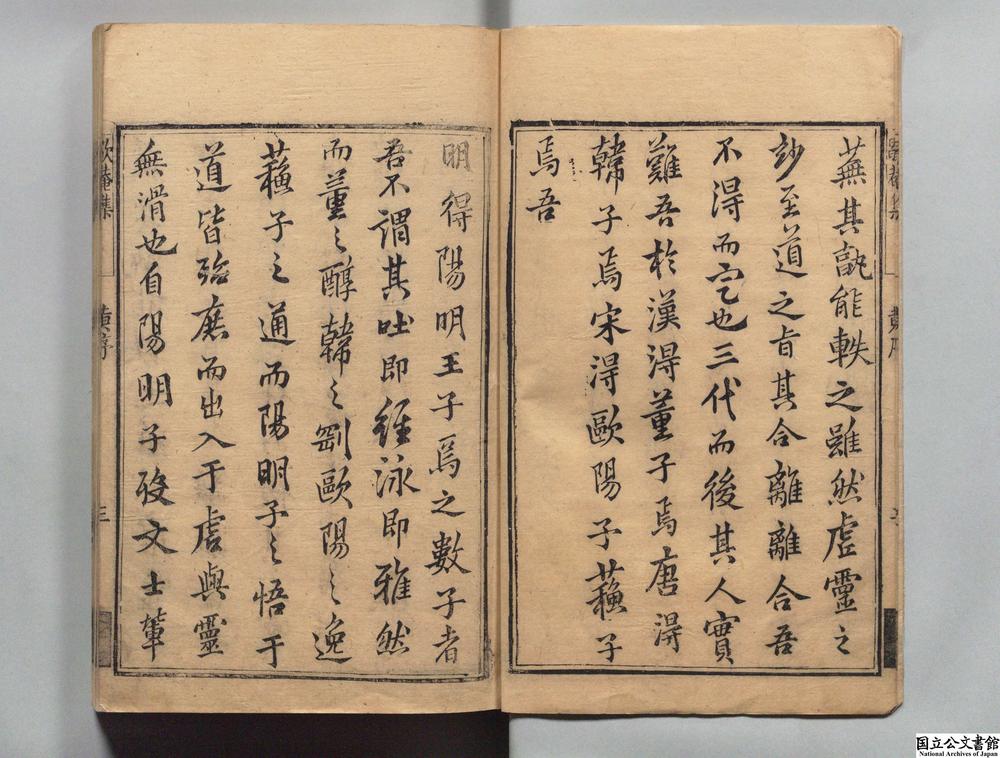 蕪其孰能軼之雖然虛靈之
妙至道之旨其合離離合吾
不得而定也三代而後其人實
難吾於漢得董子焉唐得
韓子焉宋得歐陽子蘓子
焉吾
明得陽明王子焉之數子者
吾不謂其吐即經泳即雅然
而董之醇韓之劌歐陽之逸
蘓子之通而陽明子之悟于
道皆殆庶而出入于虛與靈
無滑也自陽明子歿文士輩
黃序
三
国立公文書館
National Archives of Japan